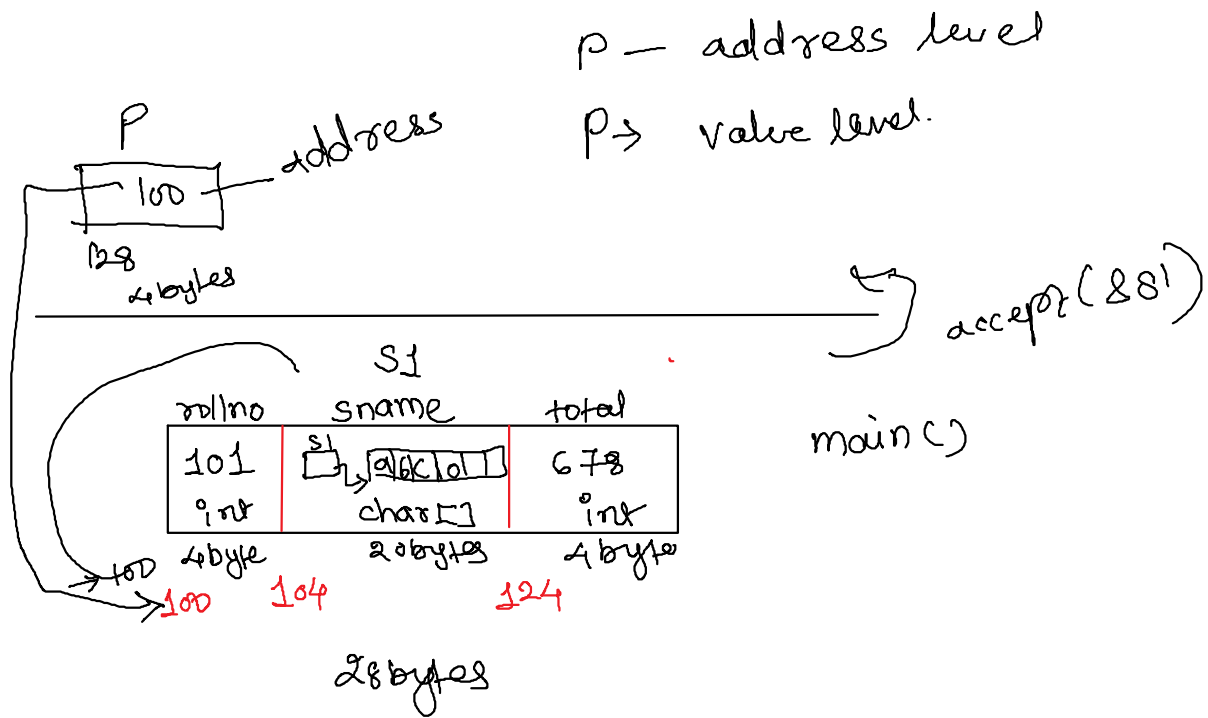 P — address level
P→ value level.
P
100
address
128
4bytes
accept(&s1)
S1
rollno sname total
101 s1 a b c \0 678
int char[] int
4byte 20bytes 4byte
100
100 104 124
main()
28bytes